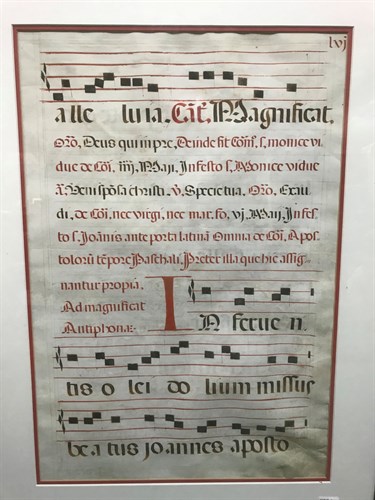 lvj
alle luia. Cāt. Magnificat.
Orō. Deus qui inpre. Deinde fit Com̄. s. monice vi
due de Cōi. iiij. Maji. In festo s. Monice vidue
ā. Veni spōsa christi. v̄. Specie tua. Orō. Exau
di. de Cōi. nec virgi. nec mar. so. vj. Maij. In fes
to s. Joānis ante portā latinā Omnia de Cōi. Apos
tolorū tēpore Paschali. Preter illa que hic assig
nantur propia.
Ad magnificat
Antiphonæ.
In feruen
tis olei dolium missus
beatus joannes aposto